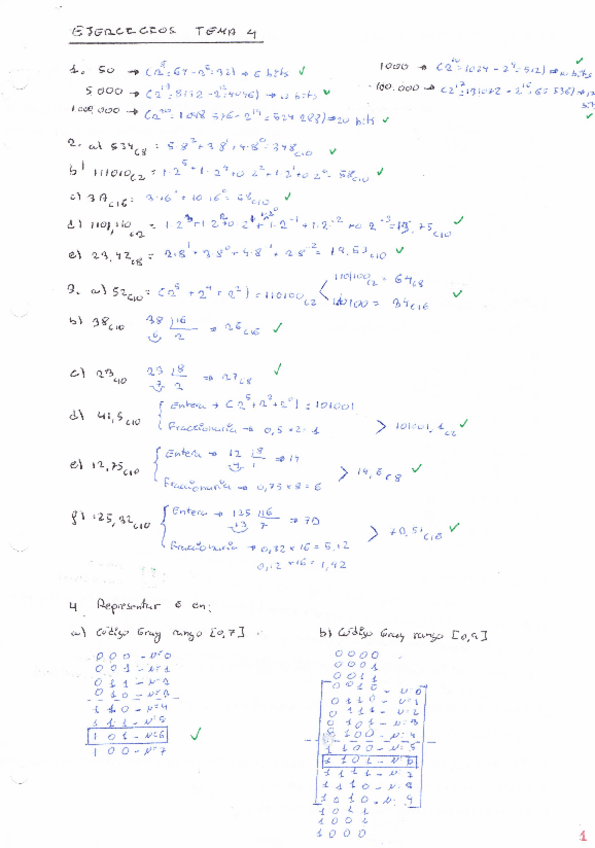 EJERCICIOS TEMA 4
1. 50 → (2^6=64 - 2^5=32) ⇒ 6 bits ✓
1000 → (2^10=1024 - 2^9=512) ⇒ 10 bits ✓
5000 → (2^13=8192 - 2^12=4096) ⇒ bits ✓
100.000 → (2^17=131072 - 2^16=65536) ⇒ bits ✓
1000.000 → (2^20=1048576 - 2^19=524288) ⇒ 20 bits ✓
2. a) 534(8 = 5·8^2+3·8^1+4·8^0=348(10 ✓
b) 111010(2 = 1·2^5+1·2^4+0·2^2+1·2^1+0·2^0=58(10 ✓
c) 3A(16 = 3·16^1+10·16^0=68(10 ✓
d) 1101,110(2 = 1·2^3+1·2^2+0·2^1+1·2^0+1·2^-1+1·2^-2+0·2^-3=13,75(10 ✓
e) 23,42(8 = 2·8^1+3·8^0+4·8^-1+2·8^-2=19,53(10 ✓
3. a) 52(10 = (2^5+2^4+2^2) = 110100(2
110100(2 = 64(8
110100 = 34(16 ✓
b) 38(10 38 |16 ⇒ 26(16 ✓
6 2
c) 23(10 23 |8 ⇒ 27(8 ✓
7 2
d) 41,5(10
Entera → (2^5+2^3+2^0) = 101001
Fraccionaria → 0,5·2=1
101001,1(2 ✓
e) 12,75(10
Entera → 12 |8 ⇒ 14
4 1
Fraccionaria → 0,75×8=6
14,6(8 ✓
f) 125,32(10
Entera → 125 |16 ⇒ 7D
13 7
Fraccionaria → 0,32×16=5,12
0,12×16=1,92
7D,51(16 ✓
4. Representar 6 en:
a) Código Gray rango [0,7]
000-Nº0
001-N=1
011-N=2
010-N=3
110-N=4
111-N=5
101-N=6 ✓
100-N=7
b) Código Gray rango [0,9]
0000
0001
0011
0010-N=0
0110-N=1
0111-N=2
0101-N=3
0100-N=4
1100-N=5
1101-N=6
1111-N=7
1110-N=8
1010-N=9
1011
1001
1000
1